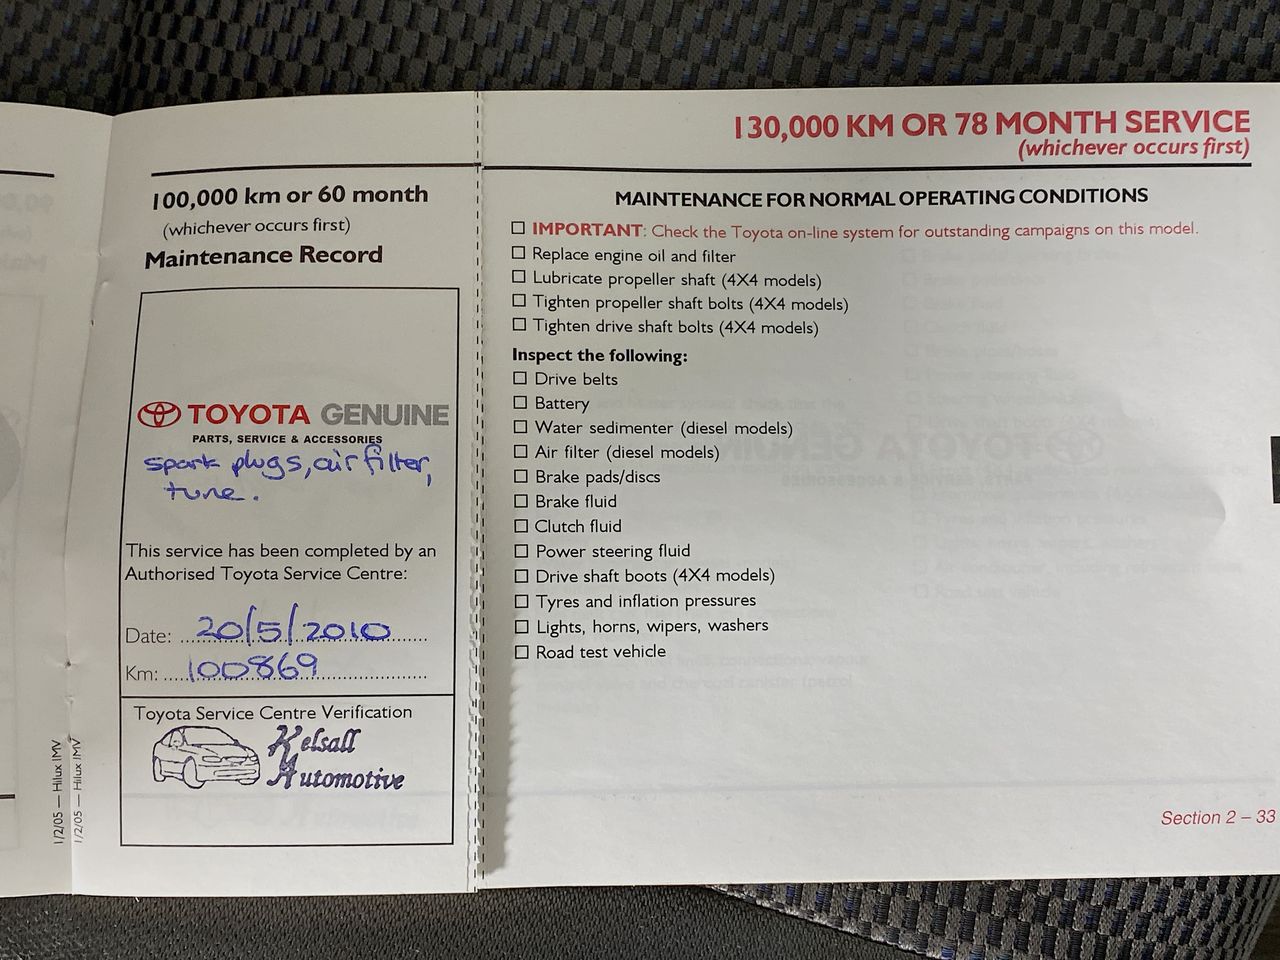 100,000 km or 60 month
(whichever occurs first)
Maintenance Record
TOYOTA GENUINE
PARTS, SERVICE & ACCESSORIES
spark plugs, air filter,
tune.
This service has been completed by an
Authorised Toyota Service Centre:
Date: 20/5/2010
Km: 100869
Toyota Service Centre Verification
Kelsall
Automotive
1/2/05 — Hilux IMV
1/2/05 — Hilux IMV
130,000 KM OR 78 MONTH SERVICE
(whichever occurs first)
MAINTENANCE FOR NORMAL OPERATING CONDITIONS
IMPORTANT: Check the Toyota on-line system for outstanding campaigns on this model.
Replace engine oil and filter
Lubricate propeller shaft (4X4 models)
Tighten propeller shaft bolts (4X4 models)
Tighten drive shaft bolts (4X4 models)
Inspect the following:
Drive belts
Battery
Water sedimenter (diesel models)
Air filter (diesel models)
Brake pads/discs
Brake fluid
Clutch fluid
Power steering fluid
Drive shaft boots (4X4 models)
Tyres and inflation pressures
Lights, horns, wipers, washers
Road test vehicle
Section 2 – 33